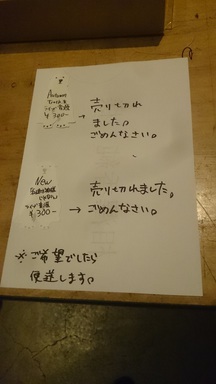 Autumn
¥300-
→
売り切れ
ましたっ
ごめんなさい。
New
¥300-
→
売り切れました。
ごめんなさい。
※ご希望でしたら
便送しますっ